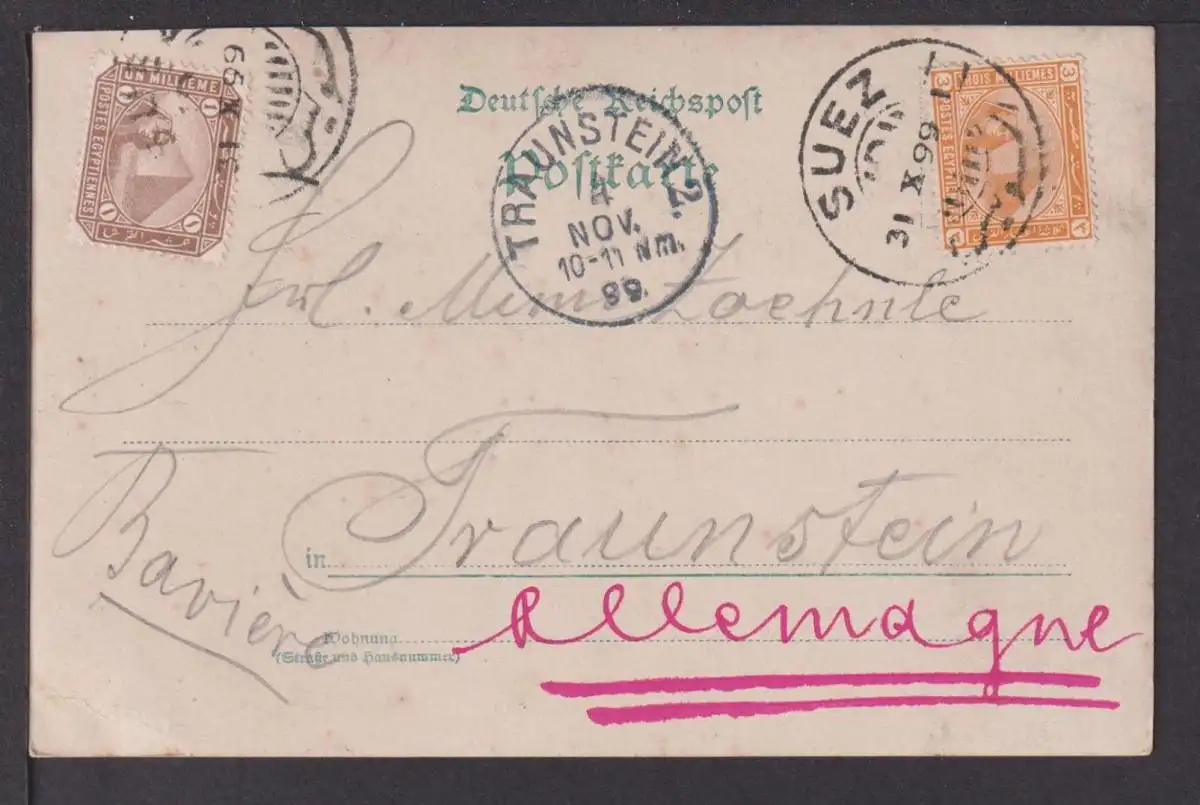 UN MILLIEME
POSTES EGYPTIENNES
1
1
X 99
SUEZ
31 X 99
TROIS MILLIEMES
3
3
Deutsche Reichspost
Postkarte
TRAUNSTEIN 2.
4
NOV.
10-11 Nm.
99.
Frl. Zoehnle
in Traunstein
Bavière
Wohnung
(Straße und Hausnummer)
Allemagne